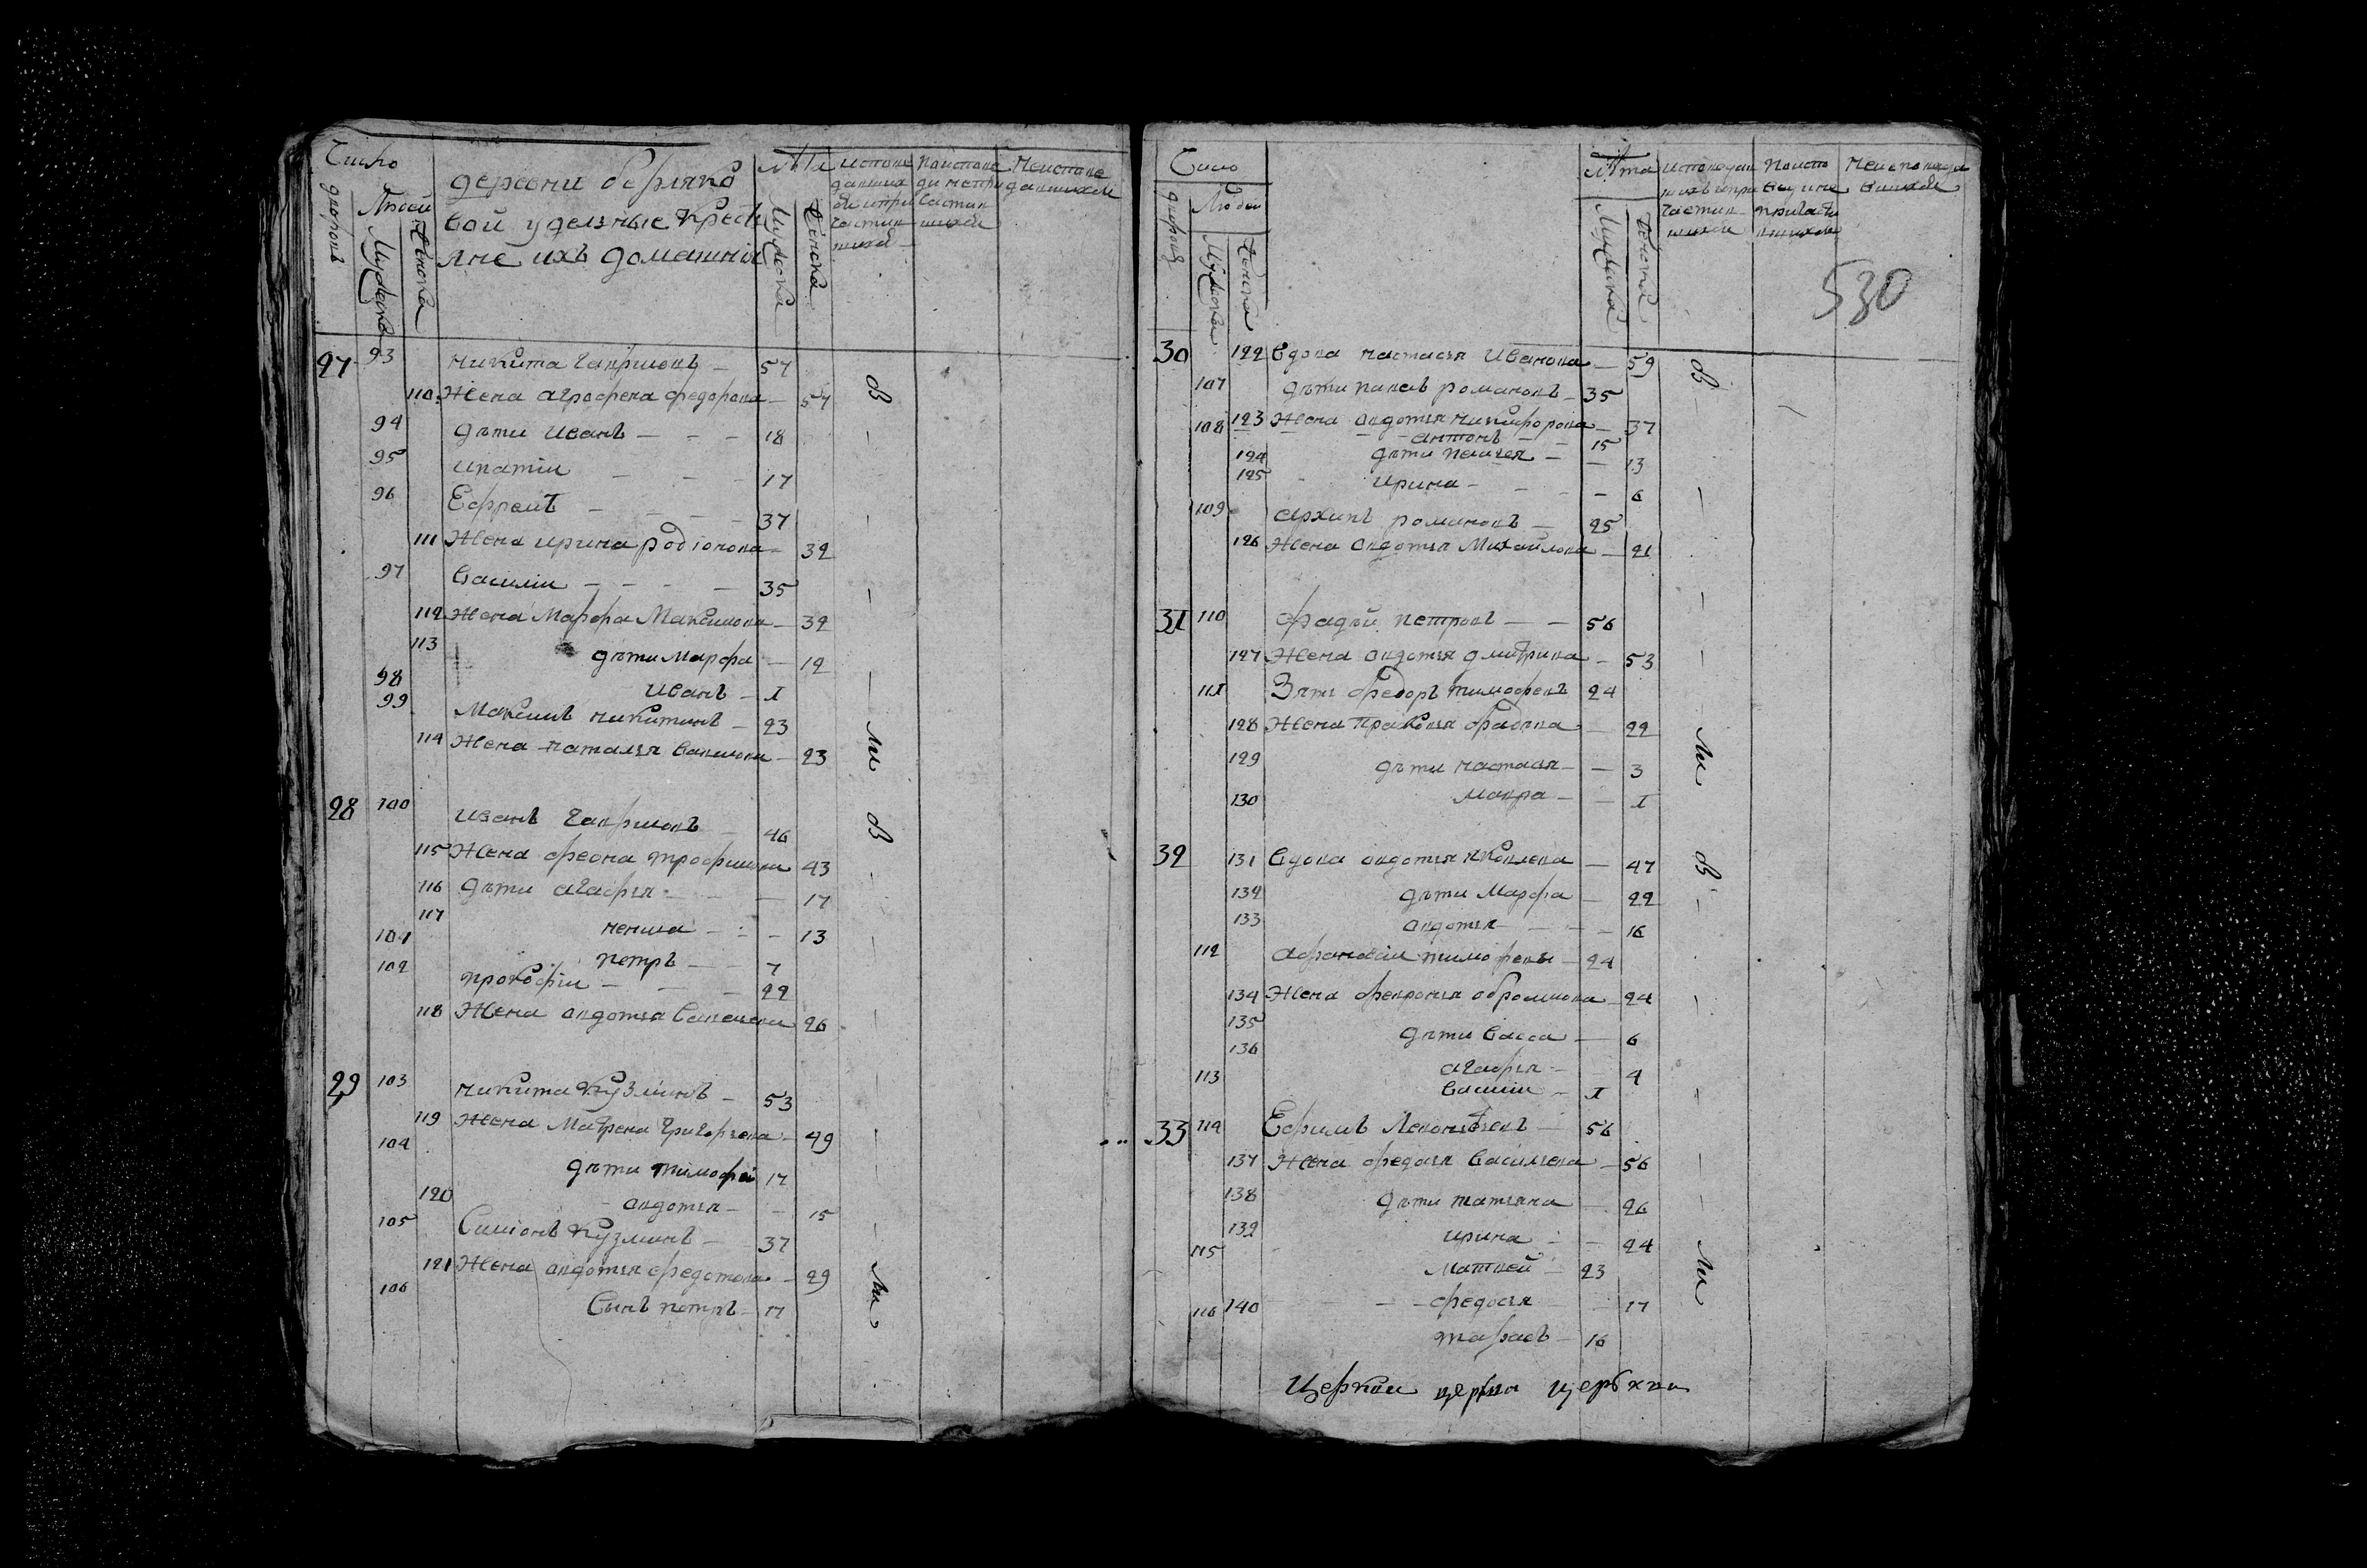 Число
дворовъ
Людей
Мужеска
Женска
деревни берляко
вой удельные крестъ
яне ихъ домашния
Лѣта
Мужеска
Женска
исповѣ
давших
ся и при
частив
шихся
по исповѣ
ди не при
частив
шихся
не исповѣ
давшихся
27 93 никита гавриловъ — 57
110 жена аграфена федорова — 57
94 дѣти иванъ — — — 18
95 ипатіи — — — 17
96 Ефремъ — — — 37
111 жена ирина родіонова — 32
97 василіи — — — 35
112 жена марфа Максимова — 32
113 дѣти марфа — 12
98 иванъ — 1
99 Максимъ никитинъ — 23
114 жена наталья василева — 23
28 100 иванъ гавриловъ — 46
115 жена феона трофимова 43
116 дѣти агафья — — 17
117 ненила — — 13
101 петръ — 7
102 прокофіи — — — 22
118 жена авдотья савелева 26
29 103 никита кузминъ — 53
119 жена Матрена григорьева — 49
104 дѣти тимофеи 17
120 авдотья — — 15
105 Симіонъ кузминъ — 37
121 жена авдотья федотова — 29
106 Сынъ петръ — 17
были
были
Число
дворовъ
Людей
Мужеска
Женска
Лѣта
Мужеска
Женска
исповедав
шихся и при
частив
шихся
по испо
веди не
причасти
вшихся
не исповеда
вшихся
530
30 122 вдова настасья Иванова — 59
107 дѣти павелъ романовъ — 35
108 123 жена авдотья никифорова — 37
антонъ — 15
124 дѣти пелагея — — 13
125 ирина — — — 6
109 архипъ романовъ — 25
126 жена авдотья Михайлова — 21
31 110 фадѣй петровъ — — 56
127 жена авдотья дмитрива — 53
111 Зять федоръ тимофевъ 24
128 жена прасковья фадѣева — 22
129 дѣти настасья — — 3
130 мавра — — 1
32 131 вдова авдотья яковлева — 47
132 дѣти Марфа — 22
133 авдотья — — — 16
112 афонасіи тимофевъ — 24
134 жена февронья абрамова — 24
135 дѣти васса — 6
136 агафья — 4
113 василіи — 1
33 114 Ефимъ Леонтьевъ — 56
137 жена федосья василева — 56
138 дѣти татьяна — 26
139 ирина — — 24
115 матвей — 23
116 140 федосья — 17
тарасъ — 16
были
были
Церкви